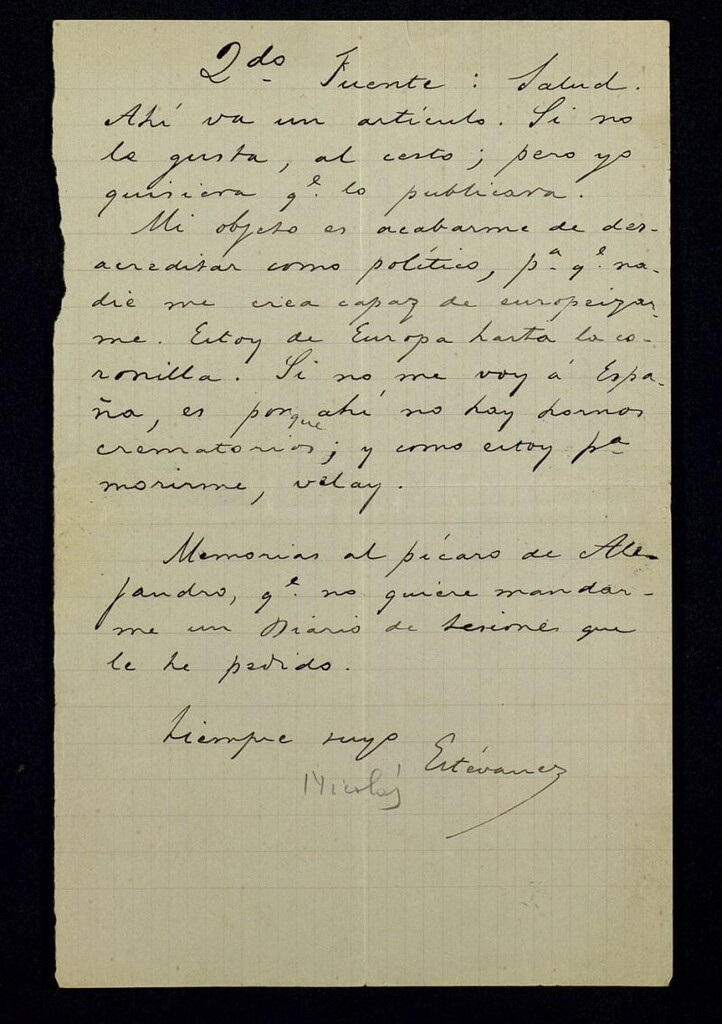 2do Fuente: Salud.
Ahí va un artículo. Si no
le gusta, al cesto; pero yo
quisiera qe. lo publicara.
Mi objeto es acabarme de des-
acreditar como político, pa. qe. na-
die me crea capaz de europeizar-
me. Estoy de Europa hasta la co-
ronilla. Si no me voy á Espa-
ña, es porque ahí no hay hornos
crematorios; y como estoy pa
morirme, velay.
Memorias al pícaro de Ale-
jandro, qe. no quiere mandar-
me un Diario de sesiones que
le he pedido.
Siempre suyo
Estévanez
Nicolás